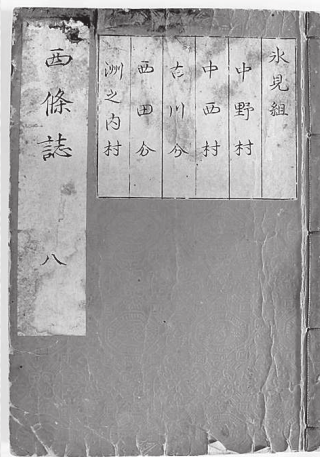 氷見組
中野村
中西村
古川分
西田分
洲之内村
西條誌 八